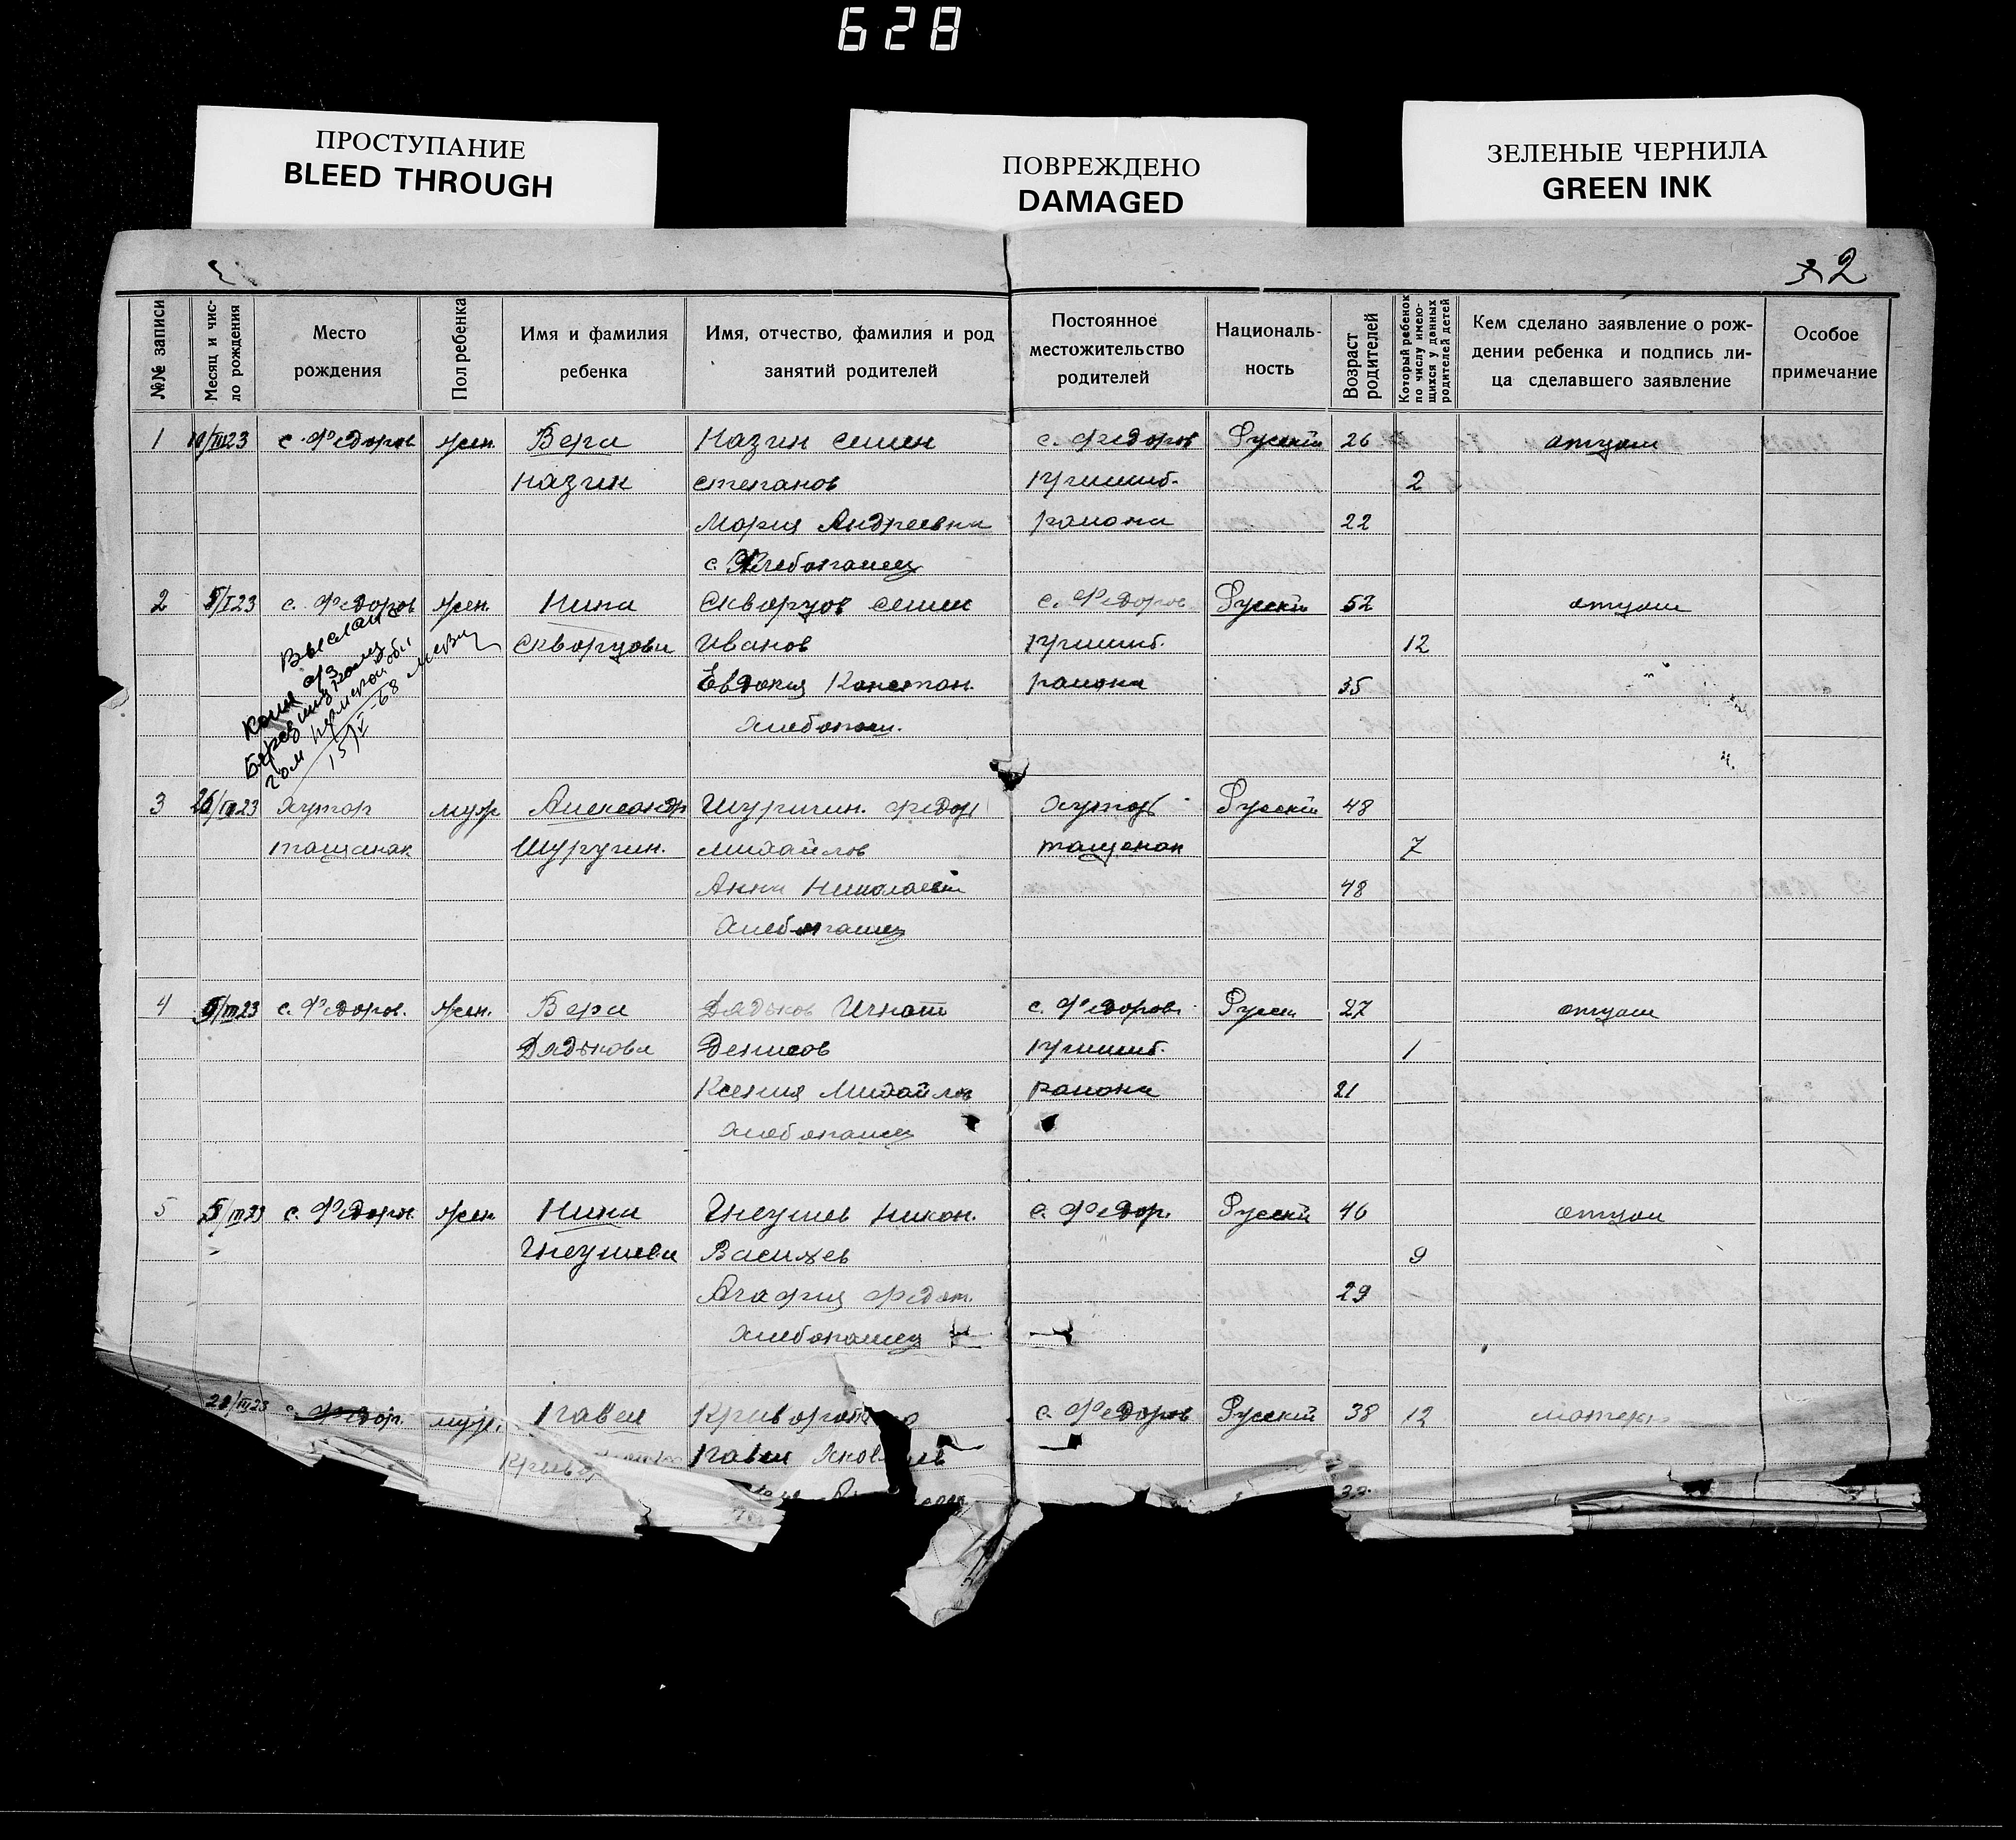 628
ПРОСТУПАНИЕ
BLEED THROUGH
ПОВРЕЖДЕНО
DAMAGED
ЗЕЛЕНЫЕ ЧЕРНИЛА
GREEN INK
2
№№ записи
Месяц и число рождения
Место рождения
Пол ребенка
Имя и фамилия ребенка
Имя, отчество, фамилия и род занятий родителей
Постоянное местожительство родителей
Националь-ность
Возраст родителей
Который ребенок по числу имею-щихся у данных родителей детей
Кем сделано заявление о рож-дении ребенка и подпись ли-ца сделавшего заявление
Особое примечание
1 10/III 23 с. Федоров жен Вера Назин Семен с. Федоров Русский 26 отцом
Назин Степанов 2
Мария Андреевна района 22
с. Хлебопашец
2 5/I 23 с. Федоров жен. Нина Скворцов Семен с. Федоров Русский 52 отцом
Скворцова Иванов 12
Евдокия Констан. района 35
Хлебопаш.
3 26/III 23 Хутор муж Александр Шуригин. Федор Хутор Русский 48
Тащенак Шуругин. Михайлов Тащенак 7
Анна Николаевн 48
Хлебопашец
4 5/III 23 с. Федоров. жен. Вера Дядьков Игнат с. Федоров. Русск 27 отцом
Дядькова Денисов 1
Ксения Михайлов района 21
Хлебопашец
5 5/III 23 с. Федоров. жен Нина Гнеушев Никон. с. Федор. Русский 46 отцом
Гнеушева Васильев 9
Агафия Федот. 29
Хлебопашец
с. Федор. муж. Павел с. Федоров Русский 38 12 матерью
Павел